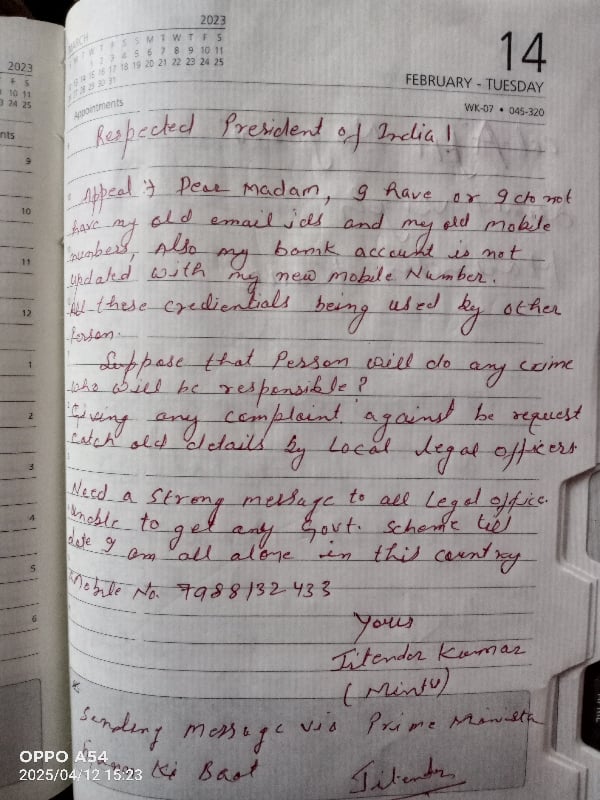 2023
MARCH
M T W T F S S M T W T F S
1 2 3 4 5 6 7 8 9 10 11
13 14 15 16 17 18 19 20 21 22 23 24 25
27 28 29 30 31
14
FEBRUARY - TUESDAY
WK-07 • 045-320
Appointments
2023
F S
10 11
24 25
Respected President of India!
Appeal :→ Dear Madam, I have or I do not
have my old email ids and my old mobile
numbers, Also my bank account is not
updated with my new mobile Number.
All these credientials being used by other
Person.
Suppose that Person will do any crime
who will be responsible?
Giving any complaint against be request
catch old details by Local legal officers
Need a strong message to all Legal office.
unable to get any Govt. scheme till
date I am all alone in this country
Mobile No. 7988132433
Yours
Jitender Kumar
(Mintu)
Sending message via Prime Minister
Ki Baat Jitender
9
10
11
12
1
2
3
4
5
6
OPPO A54
2025/04/12 15:23